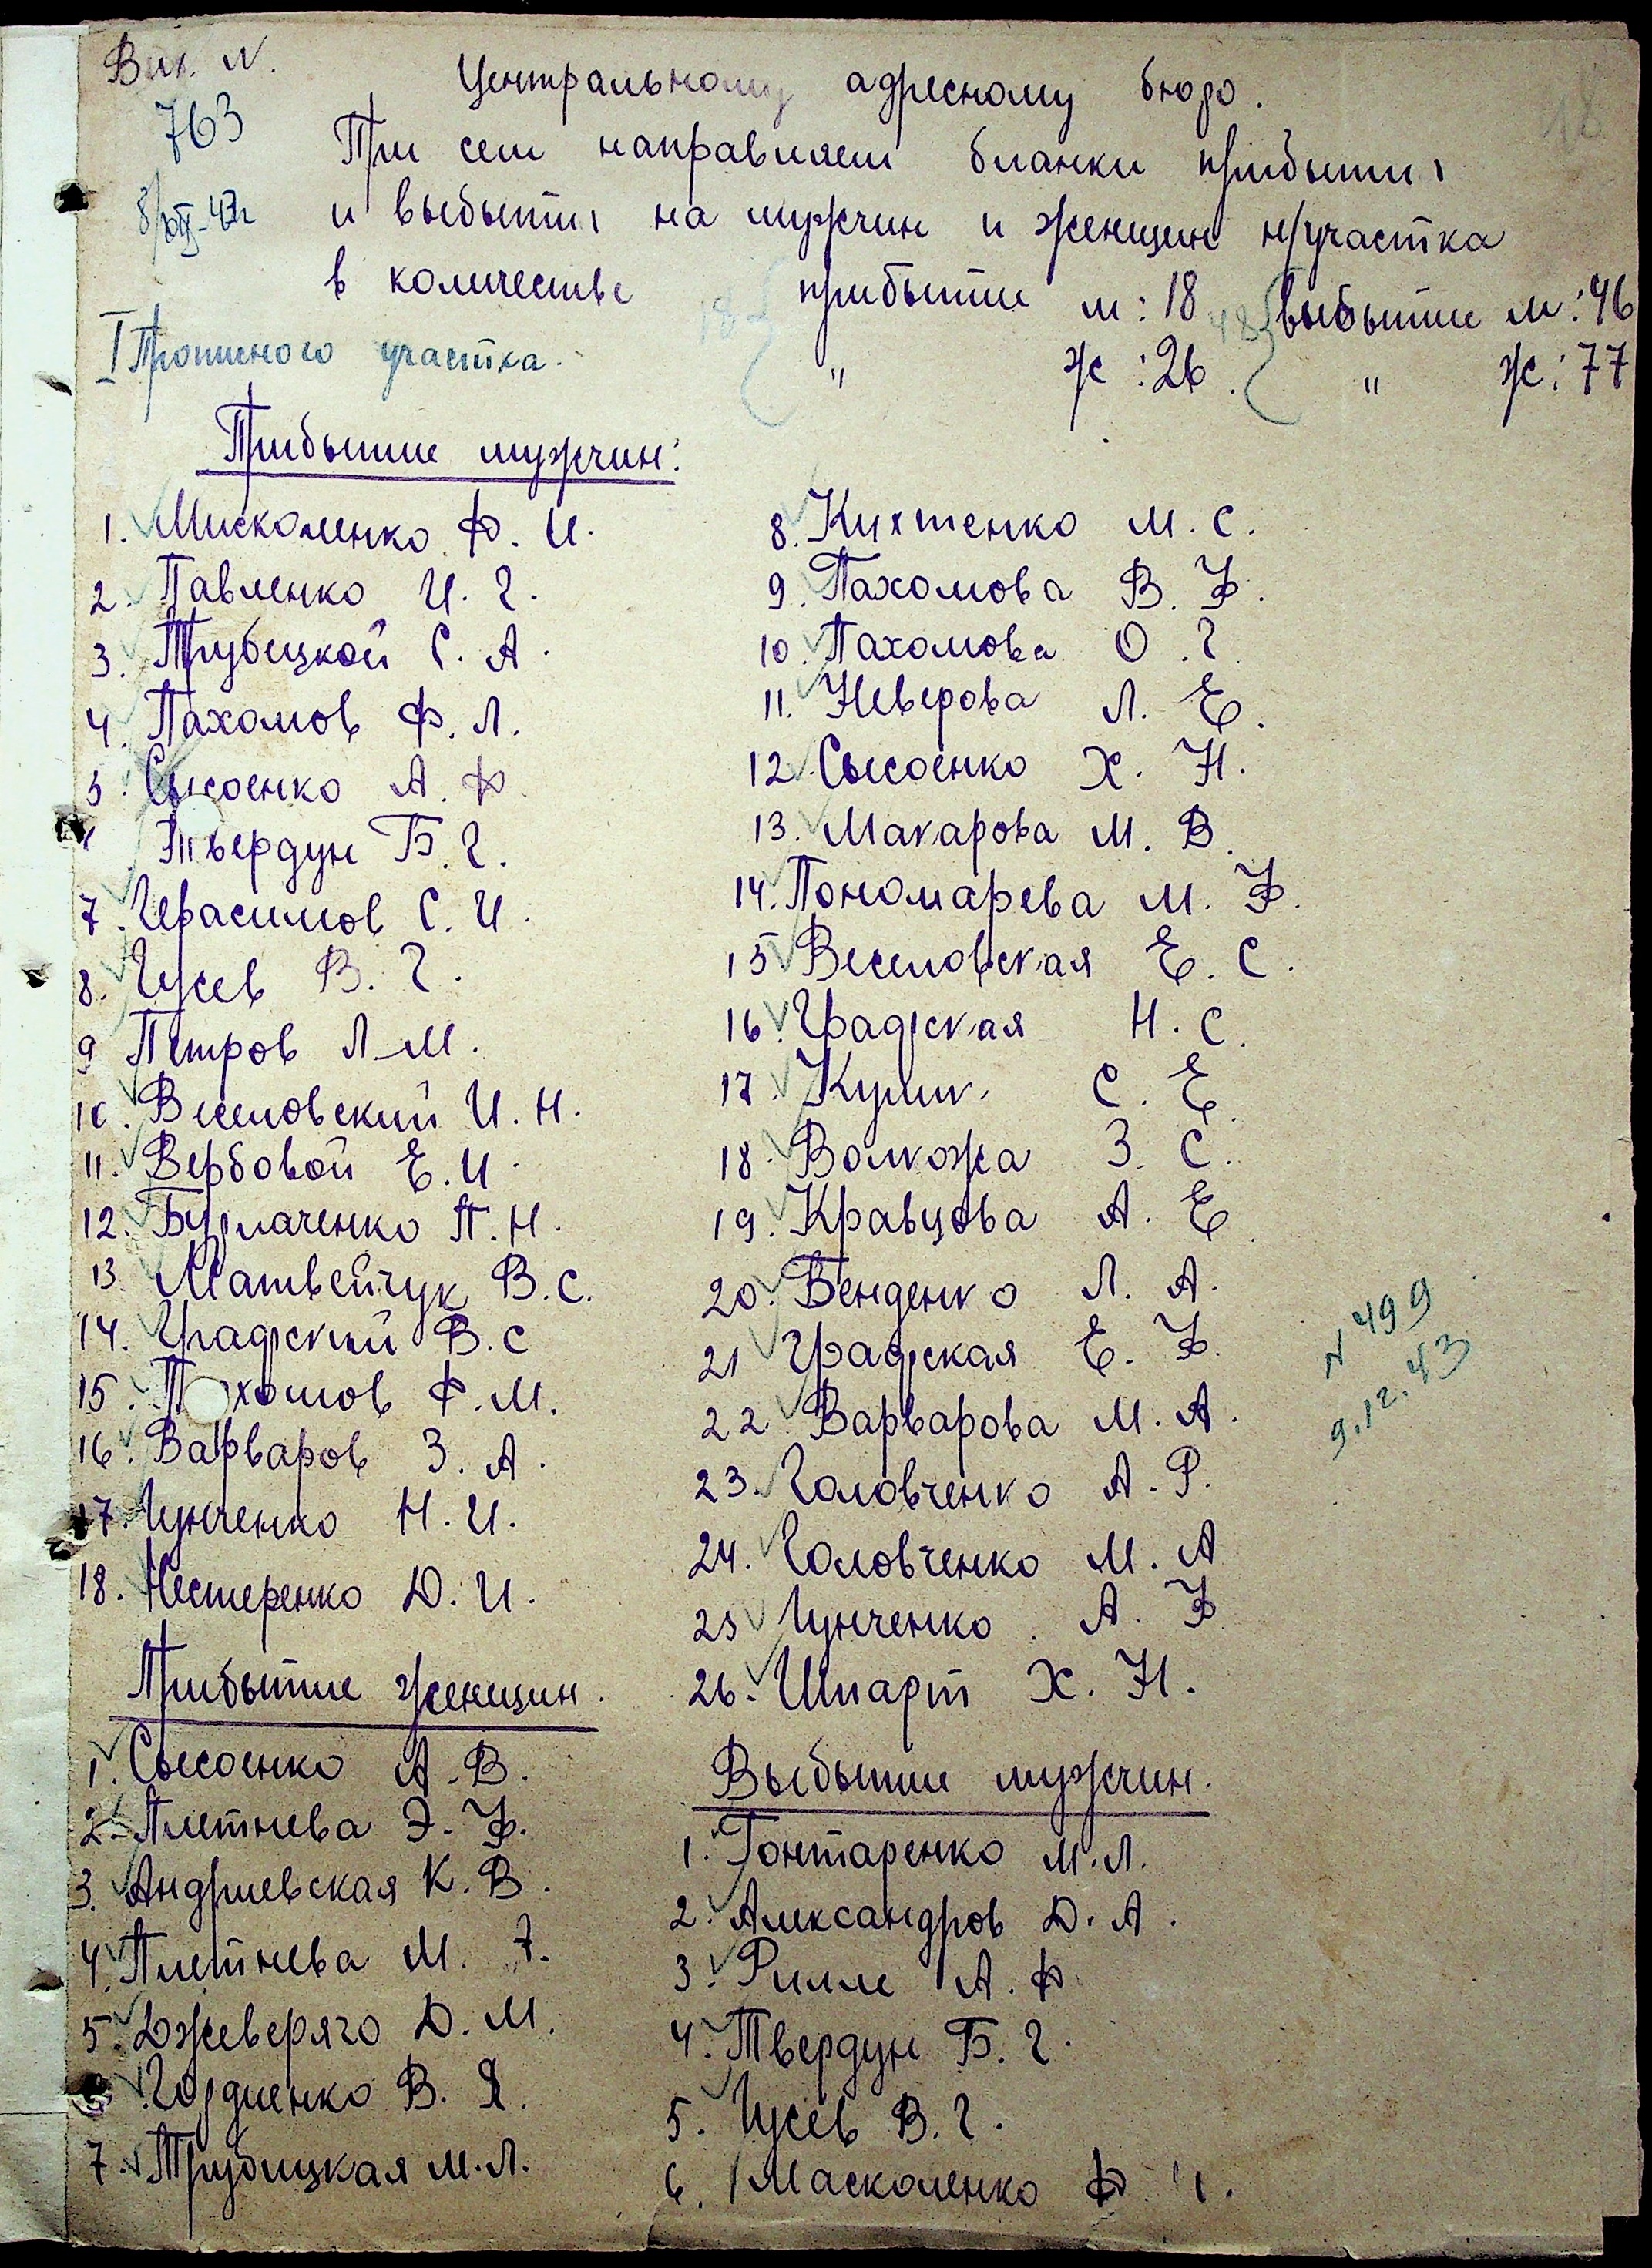 Вих. N.
763
8/XII-43г
18
Центральному адресному бюро.
При сем направляем бланки прибытия
и выбытия на мужчин и женщин н/участка
в количестве прибытие м: 18 выбытие м: 46
" ж: 26. " ж: 77
I Прописного участка.
Прибытие мужчин:
1. Мисколенко Ф. И.
2. Павленко И. Г.
3. Трубецкой С. А.
4. Пахомов Ф. Л.
5. Сысоенко А. Ф.
Твердун Б. Г.
7. Герасимов С. И.
8. Гусев В. Г.
9 Петров Л. М.
10. Веселовский И. Н.
11. Вербовой Е. И.
12. Бурлаченко П. Н.
13. Матвейчук В. С.
14. Градский В. С
15. Пахомов Ф. М.
16. Варваров З. А.
17. Гунченко Н. И.
18. Нестеренко Д. И.
Прибытие женщин.
1. Сысоенко А. В.
2. Плетнева Э. Ф.
3. Андриевская К. В.
4. Плетнева М.
5. Джеверяго Д. М.
Гордиенко В. Я.
7. Трубицкая М. Л.
8. Кихтенко М. С.
9. Пахомова В. Ф.
10. Пахомова О. Г.
11. Неверова Л. Е.
12. Сысоенко Х. Н.
13. Макарова М. В.
14. Пономарева М. Ф.
15 Веселовская Е. С.
16. Градская Н. С.
17. Кулик С. Е.
18. Волкожа З. С.
19. Кравцова А. Е.
20. Бенденко Л. А.
21 Градская Е. Ф.
22 Варварова М. А.
23. Головченко А. Р.
24. Головченко М. А
25 Гунченко А. Ф
26. Шпарт Х. Н.
Выбытие мужчин.
1. Гонтаренко М. Л.
2. Александров Д. А.
3. Рилле А. Ф
4. Твердун Б. Г.
5. Гусев В. Г.
6. Масколенко Ф. И.
N 499
9.12.43